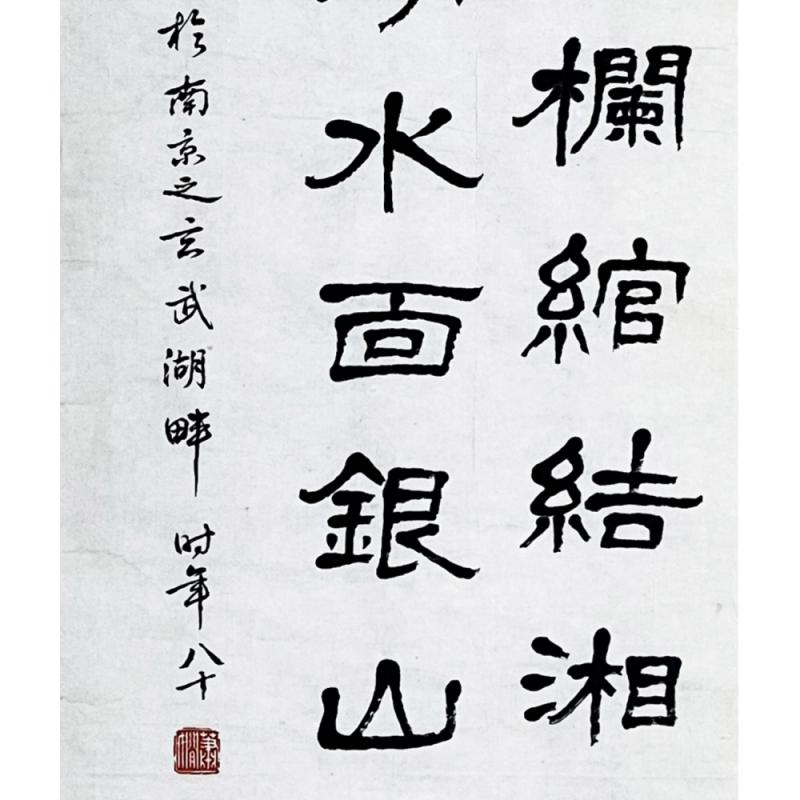 欄綰結湘
水面銀山
於南京之玄武湖畔 时年八十
蕭嫻